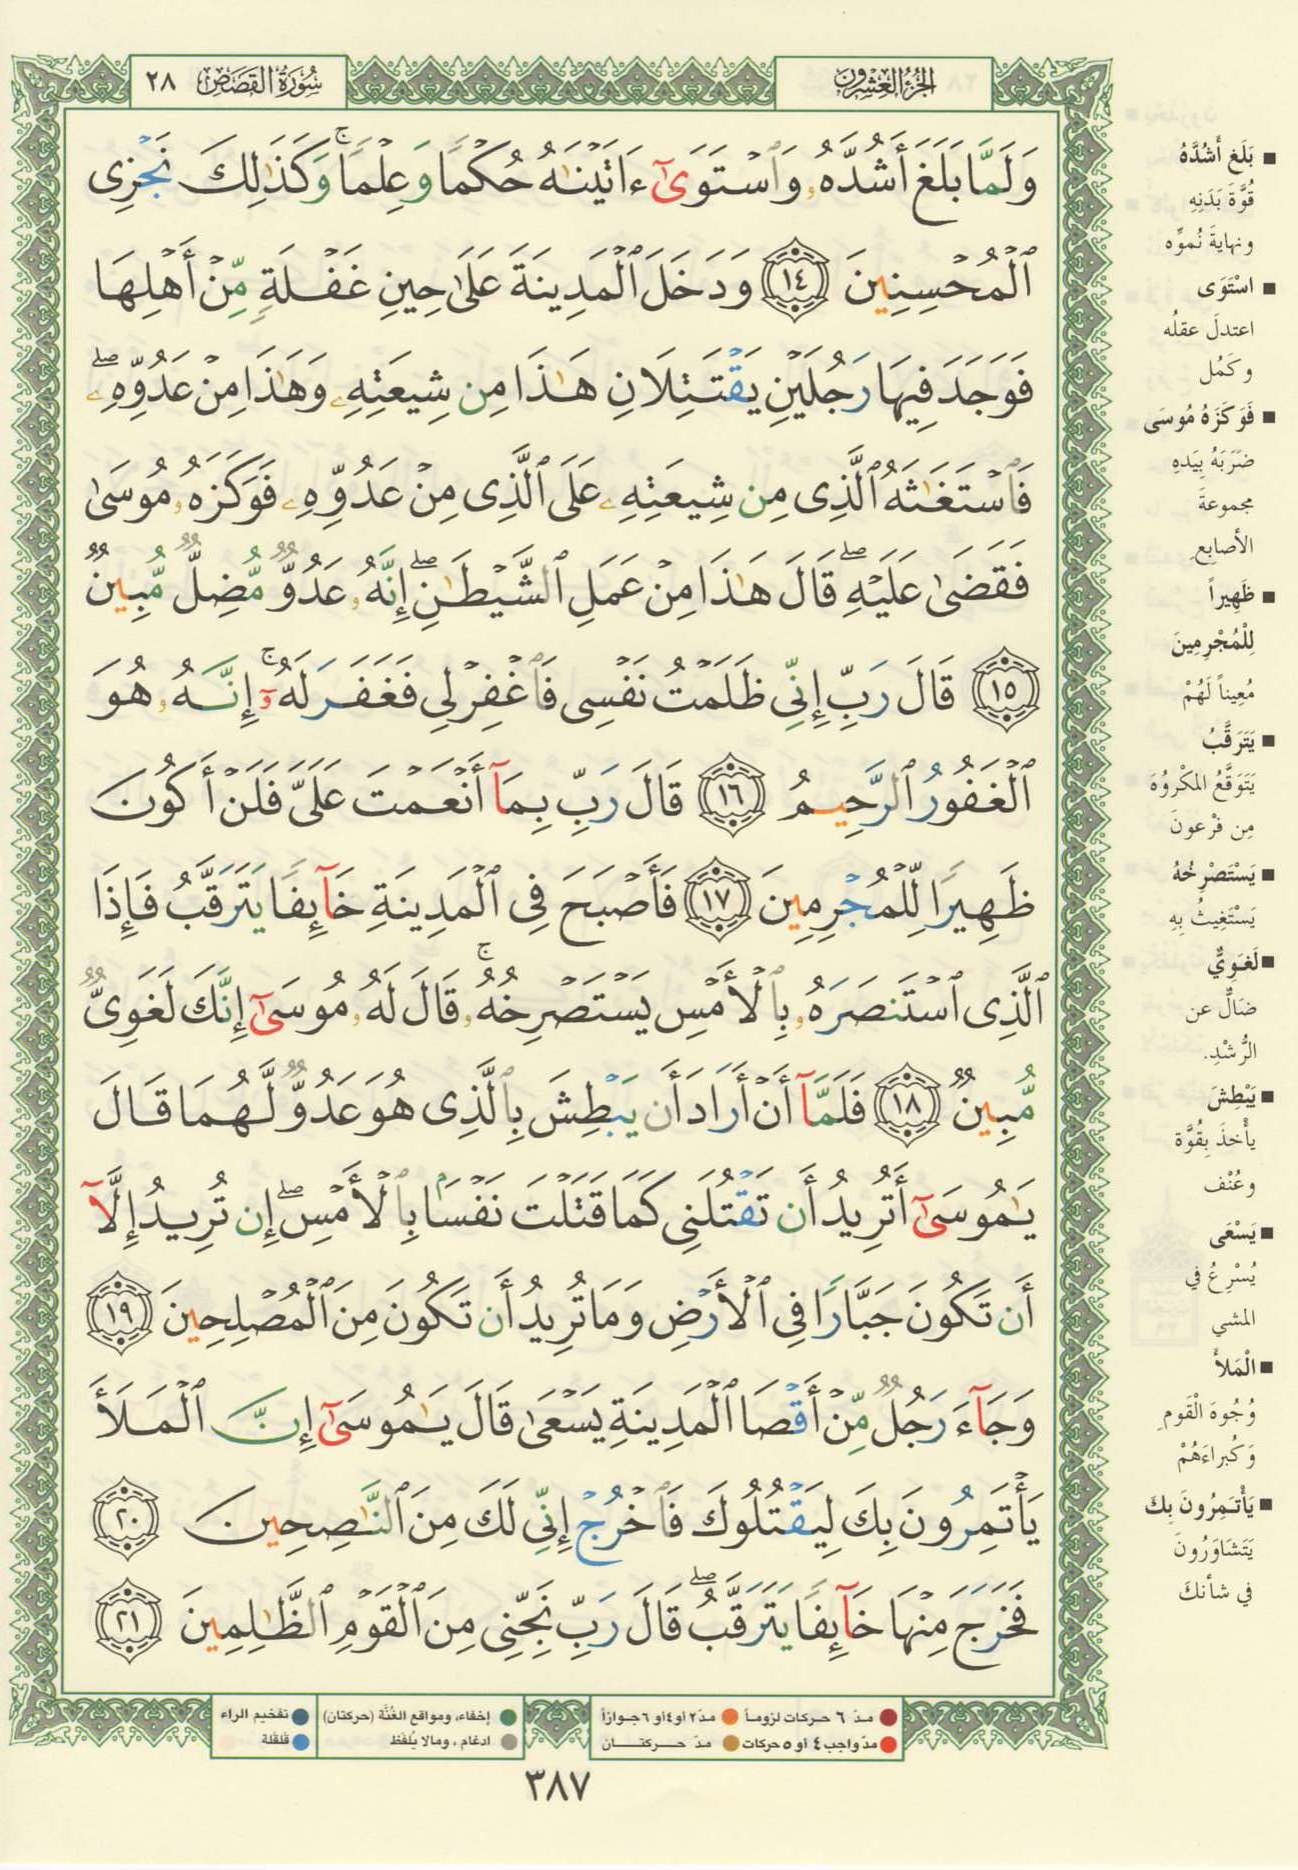 الجزء العشرون
سورة القصص ٢٨
وَلَمَّا بَلَغَ أَشُدَّهُۥ وَٱسْتَوَىٰٓ ءَاتَيْنَٰهُ حُكْمًا وَعِلْمًا ۚ وَكَذَٰلِكَ نَجْزِى
ٱلْمُحْسِنِينَ ١٤ وَدَخَلَ ٱلْمَدِينَةَ عَلَىٰ حِينِ غَفْلَةٍ مِّنْ أَهْلِهَا
فَوَجَدَ فِيهَا رَجُلَيْنِ يَقْتَتِلَانِ هَٰذَا مِن شِيعَتِهِۦ وَهَٰذَا مِنْ عَدُوِّهِۦ ۖ
فَٱسْتَغَٰثَهُ ٱلَّذِى مِن شِيعَتِهِۦ عَلَى ٱلَّذِى مِنْ عَدُوِّهِۦ فَوَكَزَهُۥ مُوسَىٰ
فَقَضَىٰ عَلَيْهِ ۖ قَالَ هَٰذَا مِنْ عَمَلِ ٱلشَّيْطَٰنِ ۖ إِنَّهُۥ عَدُوٌّ مُّضِلٌّ مُّبِينٌ
١٥ قَالَ رَبِّ إِنِّى ظَلَمْتُ نَفْسِى فَٱغْفِرْ لِى فَغَفَرَ لَهُۥٓ ۚ إِنَّهُۥ هُوَ
ٱلْغَفُورُ ٱلرَّحِيمُ ١٦ قَالَ رَبِّ بِمَآ أَنْعَمْتَ عَلَىَّ فَلَنْ أَكُونَ
ظَهِيرًا لِّلْمُجْرِمِينَ ١٧ فَأَصْبَحَ فِى ٱلْمَدِينَةِ خَآئِفًا يَتَرَقَّبُ فَإِذَا
ٱلَّذِى ٱسْتَنصَرَهُۥ بِٱلْأَمْسِ يَسْتَصْرِخُهُۥ ۚ قَالَ لَهُۥ مُوسَىٰٓ إِنَّكَ لَغَوِىٌّ
مُّبِينٌ ١٨ فَلَمَّآ أَنْ أَرَادَ أَن يَبْطِشَ بِٱلَّذِى هُوَ عَدُوٌّ لَّهُمَا قَالَ
يَٰمُوسَىٰٓ أَتُرِيدُ أَن تَقْتُلَنِى كَمَا قَتَلْتَ نَفْسًۢا بِٱلْأَمْسِ ۖ إِن تُرِيدُ إِلَّآ
أَن تَكُونَ جَبَّارًا فِى ٱلْأَرْضِ وَمَا تُرِيدُ أَن تَكُونَ مِنَ ٱلْمُصْلِحِينَ ١٩
وَجَآءَ رَجُلٌ مِّنْ أَقْصَا ٱلْمَدِينَةِ يَسْعَىٰ قَالَ يَٰمُوسَىٰٓ إِنَّ ٱلْمَلَأَ
يَأْتَمِرُونَ بِكَ لِيَقْتُلُوكَ فَٱخْرُجْ إِنِّى لَكَ مِنَ ٱلنَّٰصِحِينَ ٢٠
فَخَرَجَ مِنْهَا خَآئِفًا يَتَرَقَّبُ ۖ قَالَ رَبِّ نَجِّنِى مِنَ ٱلْقَوْمِ ٱلظَّٰلِمِينَ ٢١
■ بَلَغَ أَشُدَّهُ
قُوَّةَ بَدَنِهِ
ونهايةَ نُموِّه
■ اسْتَوَى
اعتدلَ عقلُه
وكَمُل
■ فَوَكَزَهُ مُوسَى
ضَرَبَهُ بِيَدِهِ
مجموعةَ
الأصابع
■ ظَهِيراً
لِلْمُجْرِمِينَ
مُعِيناً لَهُمْ
■ يَتَرَقَّبُ
يَتَوَقَّعُ المكْرُوهَ
مِن فرْعونَ
■ يَسْتَصْرِخُهُ
يَسْتَغِيثُ بِهِ
■ لَغَوِيٌّ
ضَالٌّ عن
الرُّشْدِ.
■ يَبْطِشَ
يأْخذَ بِقُوَّة
وعُنْف
■ يَسْعَى
يُسْرِعُ في
المشي
■ الْمَلأَ
وُجُوهَ الْقَومِ
وَكُبراءَهُمْ
■ يَأْتَمِرُونَ بِكَ
يَتَشَاوَرُونَ
في شأنكَ
مدّ ٦ حركات لزوماً ● مدّ ٢ أو ٤ أو ٦ جوازاً
مدّ واجب ٤ أو ٥ حركات ● مدّ حركتان
إخفاء، ومواقع الغُنَّة (حركتان) ● تفخيم الراء
ادغام، ومالا يُلفَظ ● قلقلة
٣٨٧